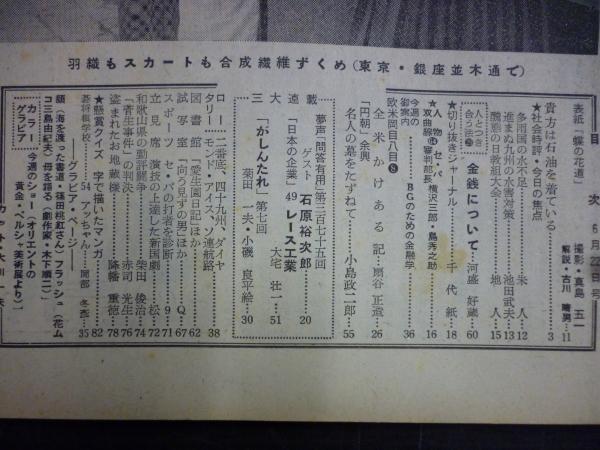 羽織もスカートも合成繊維ずくめ(東京・銀座並木通で)
目次 6月22日号
表紙「蝶の花道」 撮影・真島五一 解説・古川晴男…11
貴方は石油を着ている…3
★社会時評・今日の焦点
多雨国の水不足…朱人…12
進まぬ九州の水害対策…池田武夫…13
醜態の日教組大会…地人…15
人とつき合う法㉕ 金銭について…河盛好蔵…60
★切り抜きジャーナル…千代紙…18
★人物⑭セ・パ双曲線 審判部長 横沢三郎・島秀之助…16
今週の御案内 BGのための金融学…36
欧米岡目八目⑧ 全米かけある記…扇谷正造…26
「円朝」余興 名人の墓をたずねて…小島政二郎…55
連載
夢声「問答有用」第三百七十五回 ゲスト 石原裕次郎…20
「日本の企業」49 レース工業…大宅壮一…51
「がしんたれ」第七回…菊田一夫・小磯良平絵…30
ロータリー 二番底、四十九州、ダイヤモンド、アイスソ連航路…38
図書館 「愛生園日記」ほか…62
試写室 「向う見ずの男」ほか…Q…67
スポーツ セ・パの打者を診断…9…71
立見席 演技の上達した新国劇…松…72
和歌山県の勤評闘争…柴田俊治…74
「菅生事件」の判決…赤司光生…76
盗まれたお地蔵様…降幡重徳…78
★懸賞クイズ 字で描いたマンガ…82
碁将棋学校…54 アッちゃん…岡部冬彦…35
―グラビア・ページ―
顔(海を渡った書道・篠田桃紅さん) フラッシュ(花ムコ三島由紀夫) 母を語る(劇作家・木下順二)
カラーグラビア 今週のショー(オリエントの黄金・ペルシャ美術展より)
カット・大川一夫